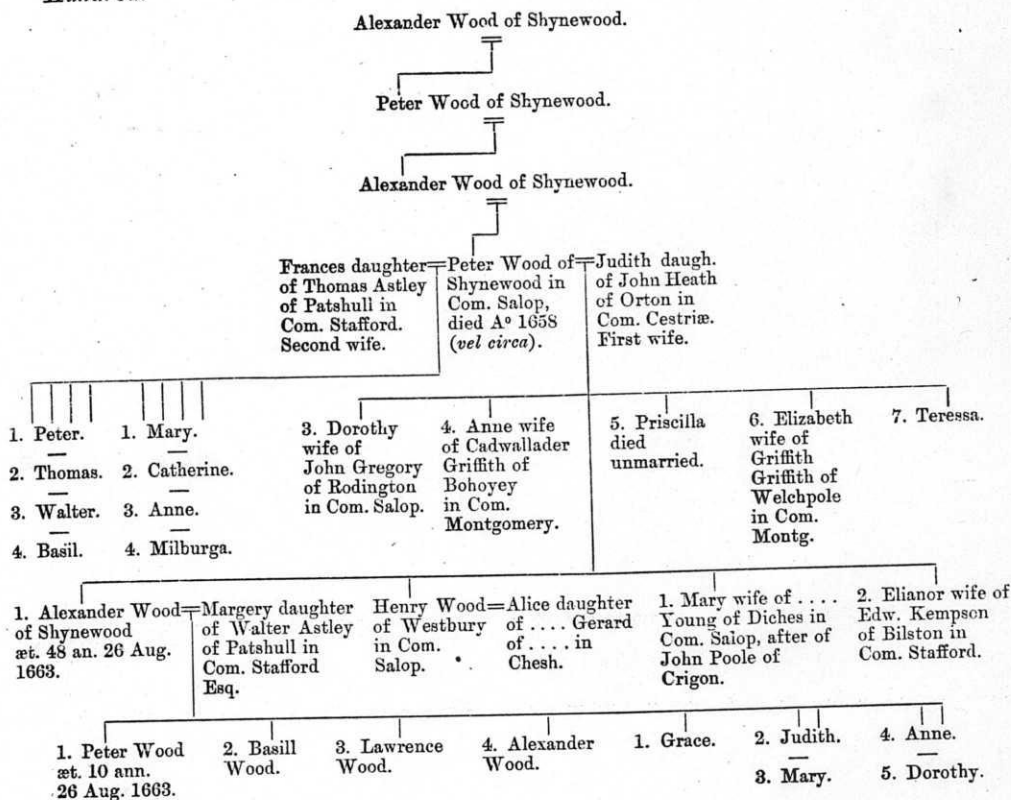 Alexander Wood of Shynewood.
Peter Wood of Shynewood.
Alexander Wood of Shynewood.
Frances daughter
of Thomas Astley
of Patshull in
Com. Stafford.
Second wife.
Peter Wood of
Shynewood in
Com. Salop,
died Aº 1658
(vel circa).
Judith daugh.
of John Heath
of Orton in
Com. Cestriæ.
First wife.
1. Peter.
2. Thomas.
3. Walter.
4. Basil.
1. Mary.
2. Catherine.
3. Anne.
4. Milburga.
3. Dorothy
wife of
John Gregory
of Rodington
in Com. Salop.
4. Anne wife
of Cadwallader
Griffith of
Bohoyey
in Com.
Montgomery.
5. Priscilla
died
unmarried.
6. Elizabeth
wife of
Griffith
Griffith of
Welchpole
in Com.
Montg.
7. Teressa.
1. Alexander Wood
of Shynewood
æt. 48 an. 26 Aug.
1663.
Margery daughter
of Walter Astley
of Patshull in
Com. Stafford
Esq.
Henry Wood
of Westbury
in Com.
Salop.
Alice daughter
of .... Gerard
of .... in
Chesh.
1. Mary wife of ....
Young of Diches in
Com. Salop, after of
John Poole of
Crigon.
2. Elianor wife of
Edw. Kempson
of Bilston in
Com. Stafford.
1. Peter Wood
æt. 10 ann.
26 Aug. 1663.
2. Basill
Wood.
3. Lawrence
Wood.
4. Alexander
Wood.
1. Grace.
2. Judith.
3. Mary.
4. Anne.
5. Dorothy.